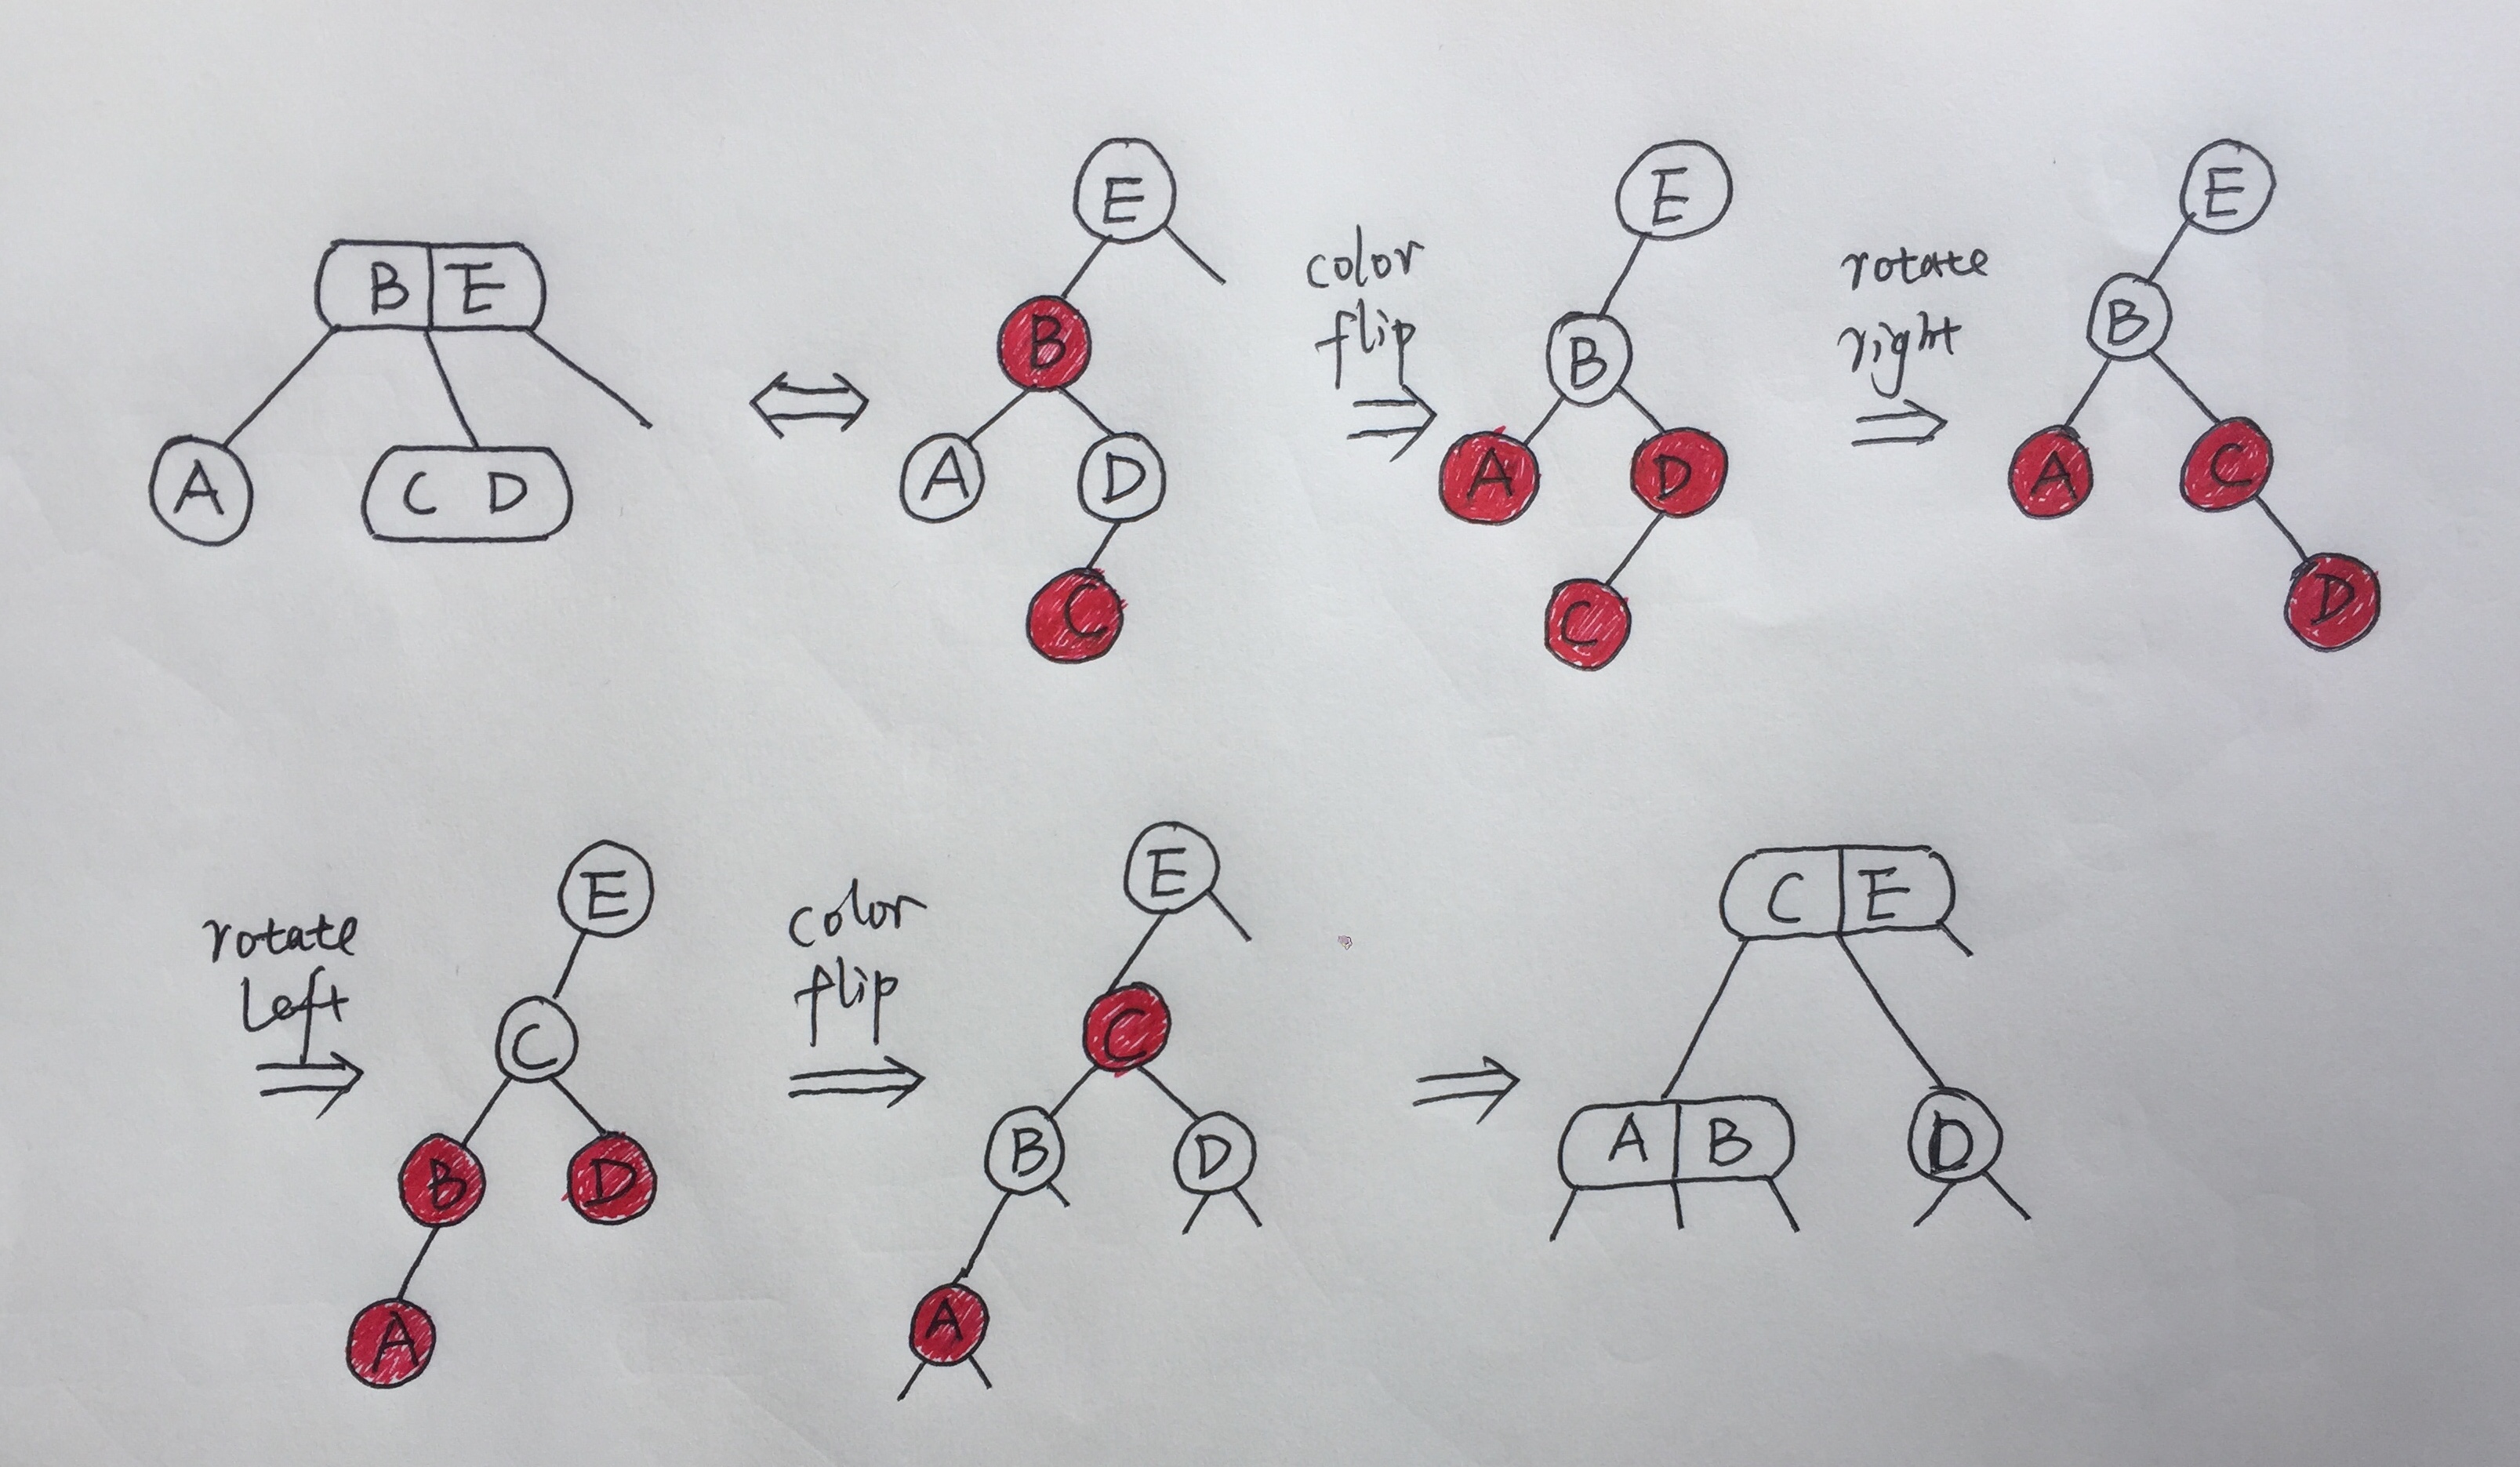 B E
A
C D
E
B
A D
C
color
flip
E
B
A D
C
rotate
right
E
B
A C
D
rotate
left
E
C
B D
A
color
flip
E
C
B D
A
C E
A B
D